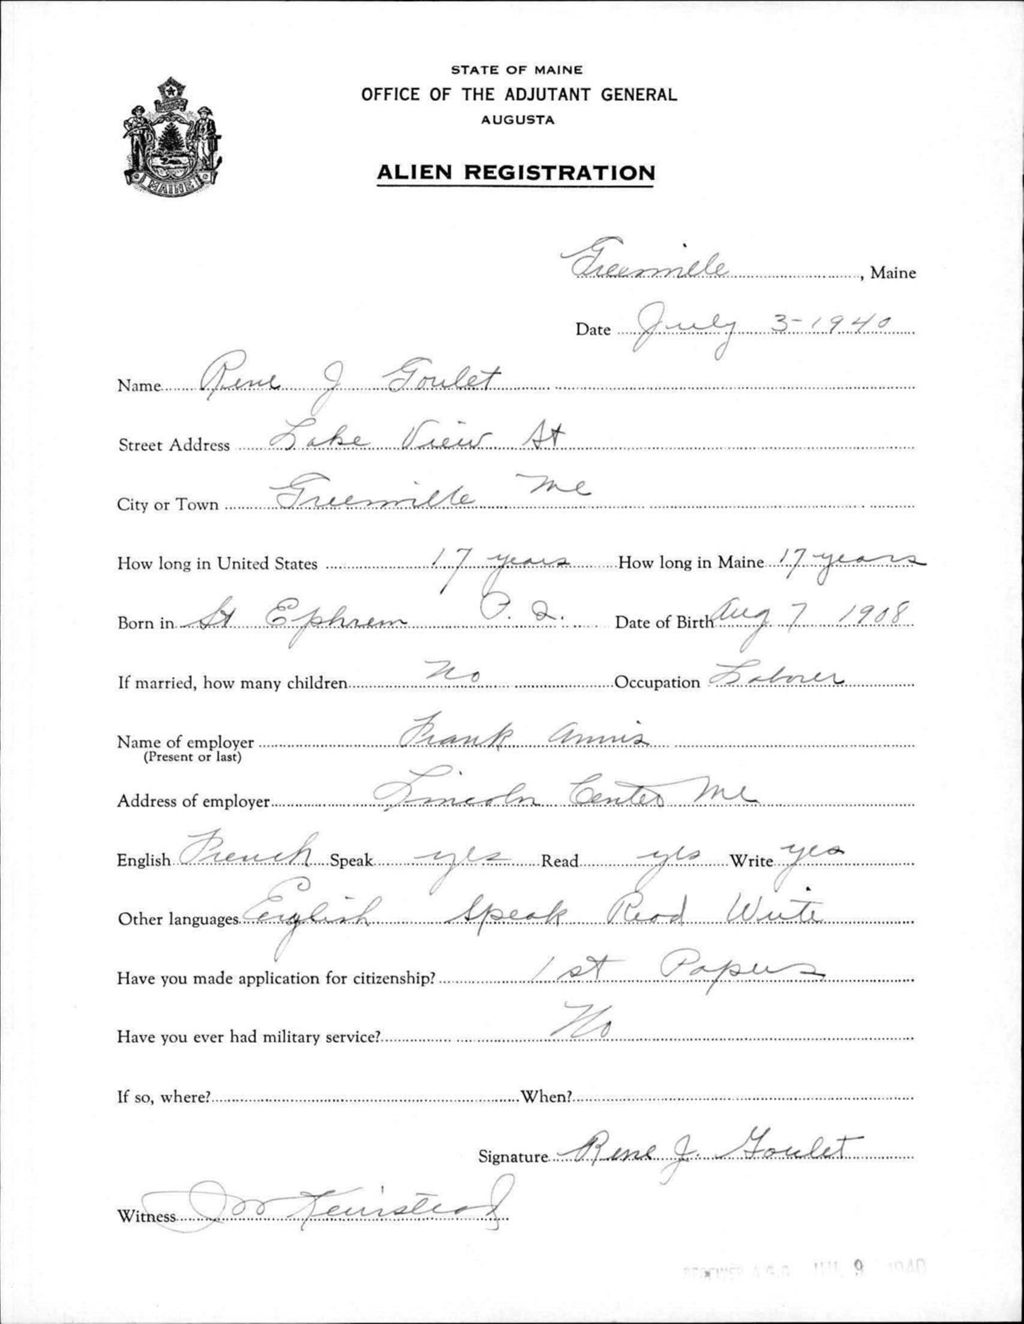 STATE OF MAINE
OFFICE OF THE ADJUTANT GENERAL
AUGUSTA
ALIEN REGISTRATION
MAINE
Greenville, Maine
Date July 3-1940
Name Rene J Goulet
Street Address Lake View St
City or Town Greenville Me
How long in United States 17 years How long in Maine 17 years
Born in St Ephrem P. Q. Date of Birth Aug 7 1908
If married, how many children No Occupation Laborer
Name of employer Frank Annis
(Present or last)
Address of employer Lincoln Center Me
English French Speak yes Read yes Write yes
Other languages English Speak Read Write
Have you made application for citizenship? 1st Papers
Have you ever had military service? No
If so, where? When?
Signature Rene J. Goulet
Witness
JUL 9 1940